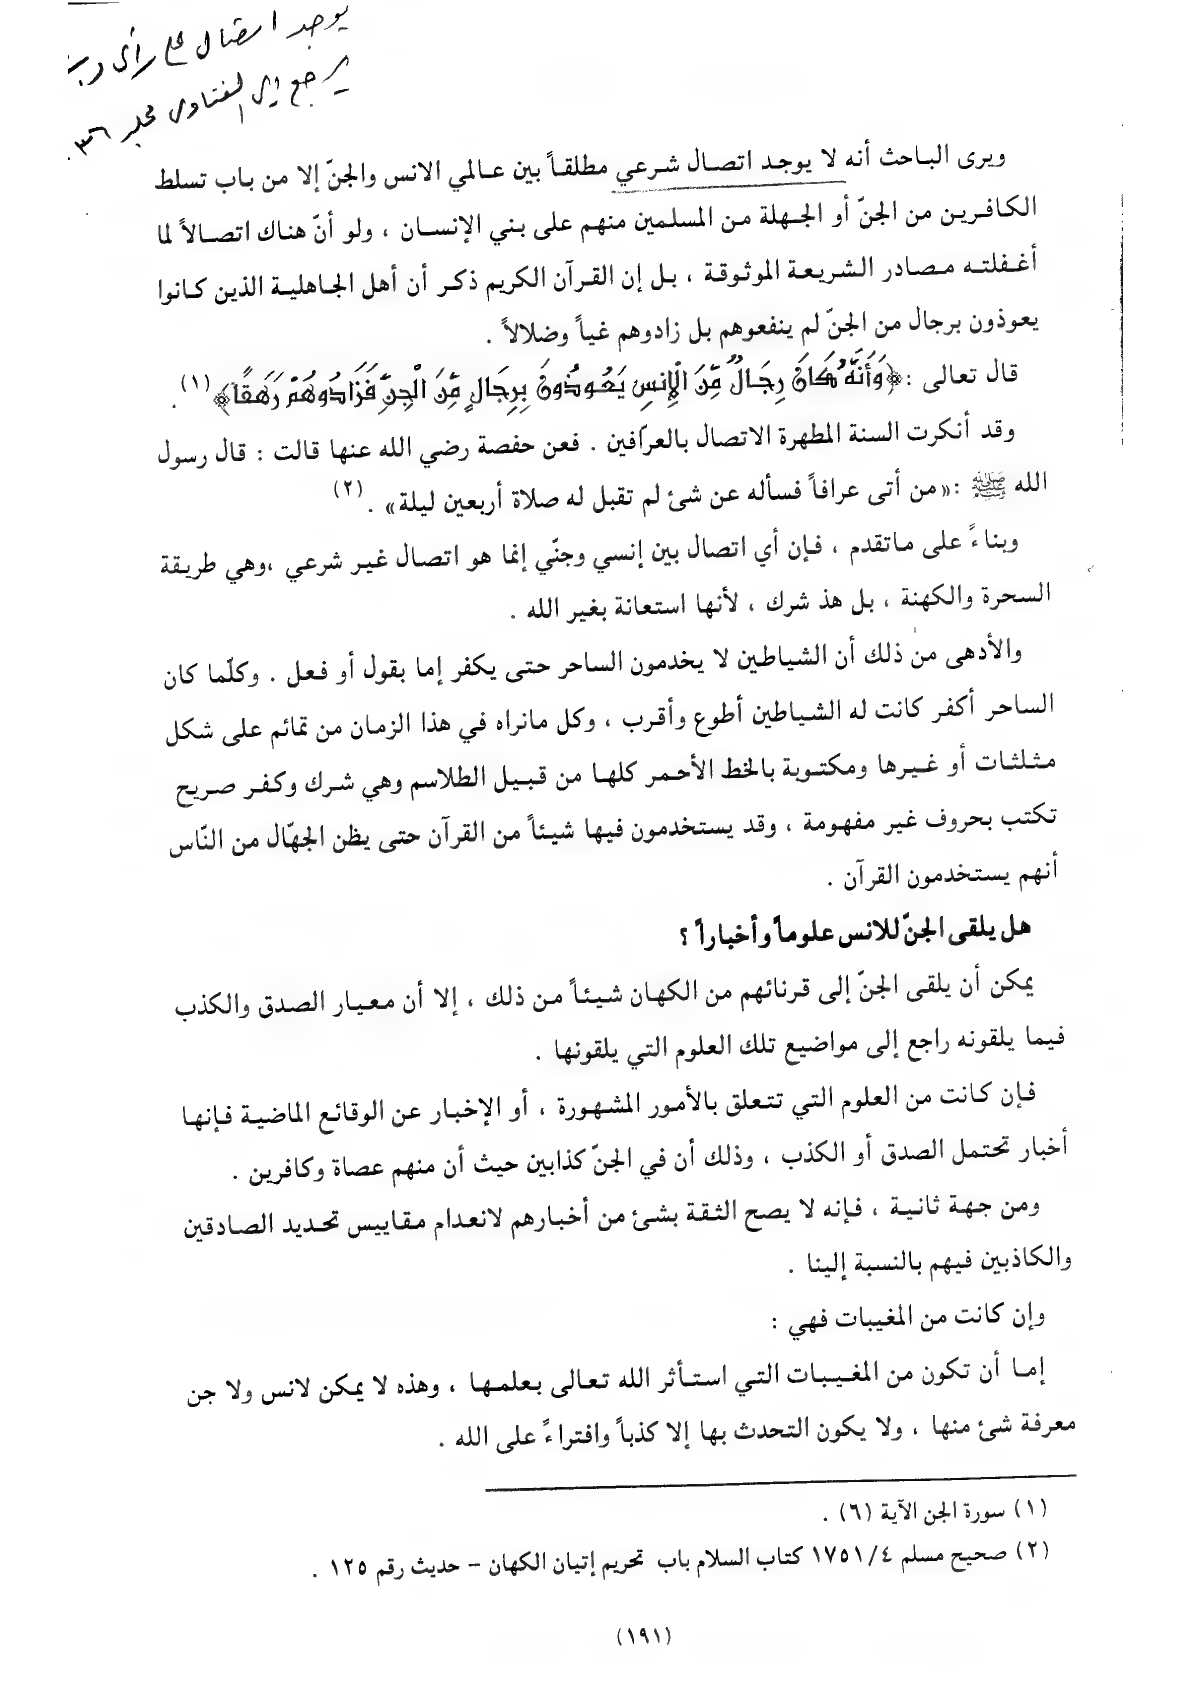 يوجد اتصال على رأي
يرجع إلى الفتاوى مجلد
ويرى الباحث أنه لا يوجد اتصال شرعي مطلقاً بين عالمي الانس والجنّ إلا من باب تسلط
الكافرين من الجنّ أو الجهلة من المسلمين منهم على بني الإنسان ، ولو أنّ هناك اتصالاً لما
أغفلته مصادر الشريعة الموثوقة ، بل إن القرآن الكريم ذكر أن أهل الجاهلية الذين كانوا
يعوذون برجال من الجنّ لم ينفعوهم بل زادوهم غياً وضلالاً .
قال تعالى :﴿وَأَنَّهُ كَانَ رِجَالٌ مِّنَ الْإِنسِ يَعُوذُونَ بِرِجَالٍ مِّنَ الْجِنِّ فَزَادُوهُمْ رَهَقًا﴾(١) .
وقد أنكرت السنة المطهرة الاتصال بالعرّافين . فعن حفصة رضي الله عنها قالت : قال رسول
الله ﷺ :«من أتى عرافاً فسأله عن شئ لم تقبل له صلاة أربعين ليلة» .(٢)
وبناءً على ماتقدم ، فإن أي اتصال بين إنسي وجنّي إنما هو اتصال غير شرعي ،وهي طريقة
السحرة والكهنة ، بل هذ شرك ، لأنها استعانة بغير الله .
والأدهى من ذلك أن الشياطين لا يخدمون الساحر حتى يكفر إما بقول أو فعل . وكلّما كان
الساحر أكفر كانت له الشياطين أطوع وأقرب ، وكل مانراه في هذا الزمان من تمائم على شكل
مثلثات أو غيرها ومكتوبة بالخط الأحمر كلها من قبيل الطلاسم وهي شرك وكفر صريح
تكتب بحروف غير مفهومة ، وقد يستخدمون فيها شيئاً من القرآن حتى يظن الجهّال من النّاس
أنهم يستخدمون القرآن .
هل يلقى الجنّ للانس علوماً وأخباراً ؟
يمكن أن يلقى الجنّ إلى قرنائهم من الكهان شيئاً من ذلك ، إلا أن معيار الصدق والكذب
فيما يلقونه راجع إلى مواضيع تلك العلوم التي يلقونها .
فإن كانت من العلوم التي تتعلق بالأمور المشهورة ، أو الإخبار عن الوقائع الماضية فإنها
أخبار تحتمل الصدق أو الكذب ، وذلك أن في الجنّ كذابين حيث أن منهم عصاة وكافرين .
ومن جهة ثانية ، فإنه لا يصح الثقة بشئ من أخبارهم لانعدام مقاييس تحديد الصادقين
والكاذبين فيهم بالنسبة إلينا .
وإن كانت من المغيبات فهي :
إما أن تكون من المغيبات التي استأثر الله تعالى بعلمها ، وهذه لا يمكن لانس ولا جن
معرفة شئ منها ، ولا يكون التحدث بها إلا كذباً وافتراءً على الله .
(١) سورة الجن الآية (٦) .
(٢) صحيح مسلم ١٧٥١/٤ كتاب السلام باب تحريم إتيان الكهان – حديث رقم ١٢٥ .
(١٩١)